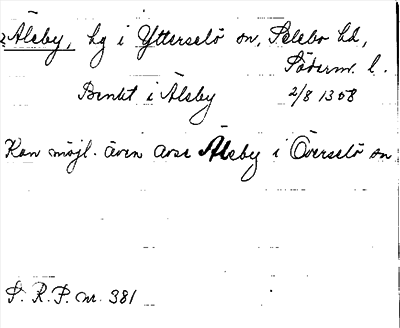 Älsby, by i Ytterselö sn, Selebo hd,
Söderm. l.
Benkt i Älsby 2/8 1358
Kan möjl. även avse Älsby i Överselö sn
S. R. P. nr. 381